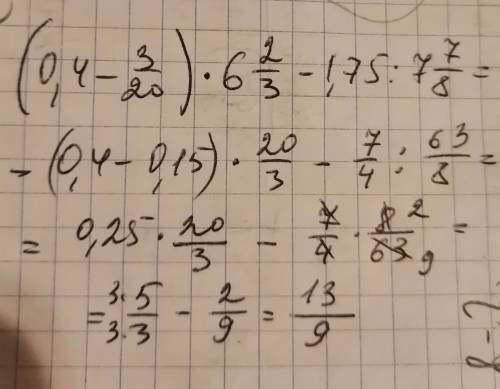 (0,4 - 3/20) · 6 2/3 - 1,75 : 7 7/8 =
- (0,4 - 0,15) · 20/3 - 7/4 : 63/8 =
= 0,25 · 20/3 - 7/4 · 8/63 2 9 =
= 3· 5/3· 3 - 2/9 = 13/9